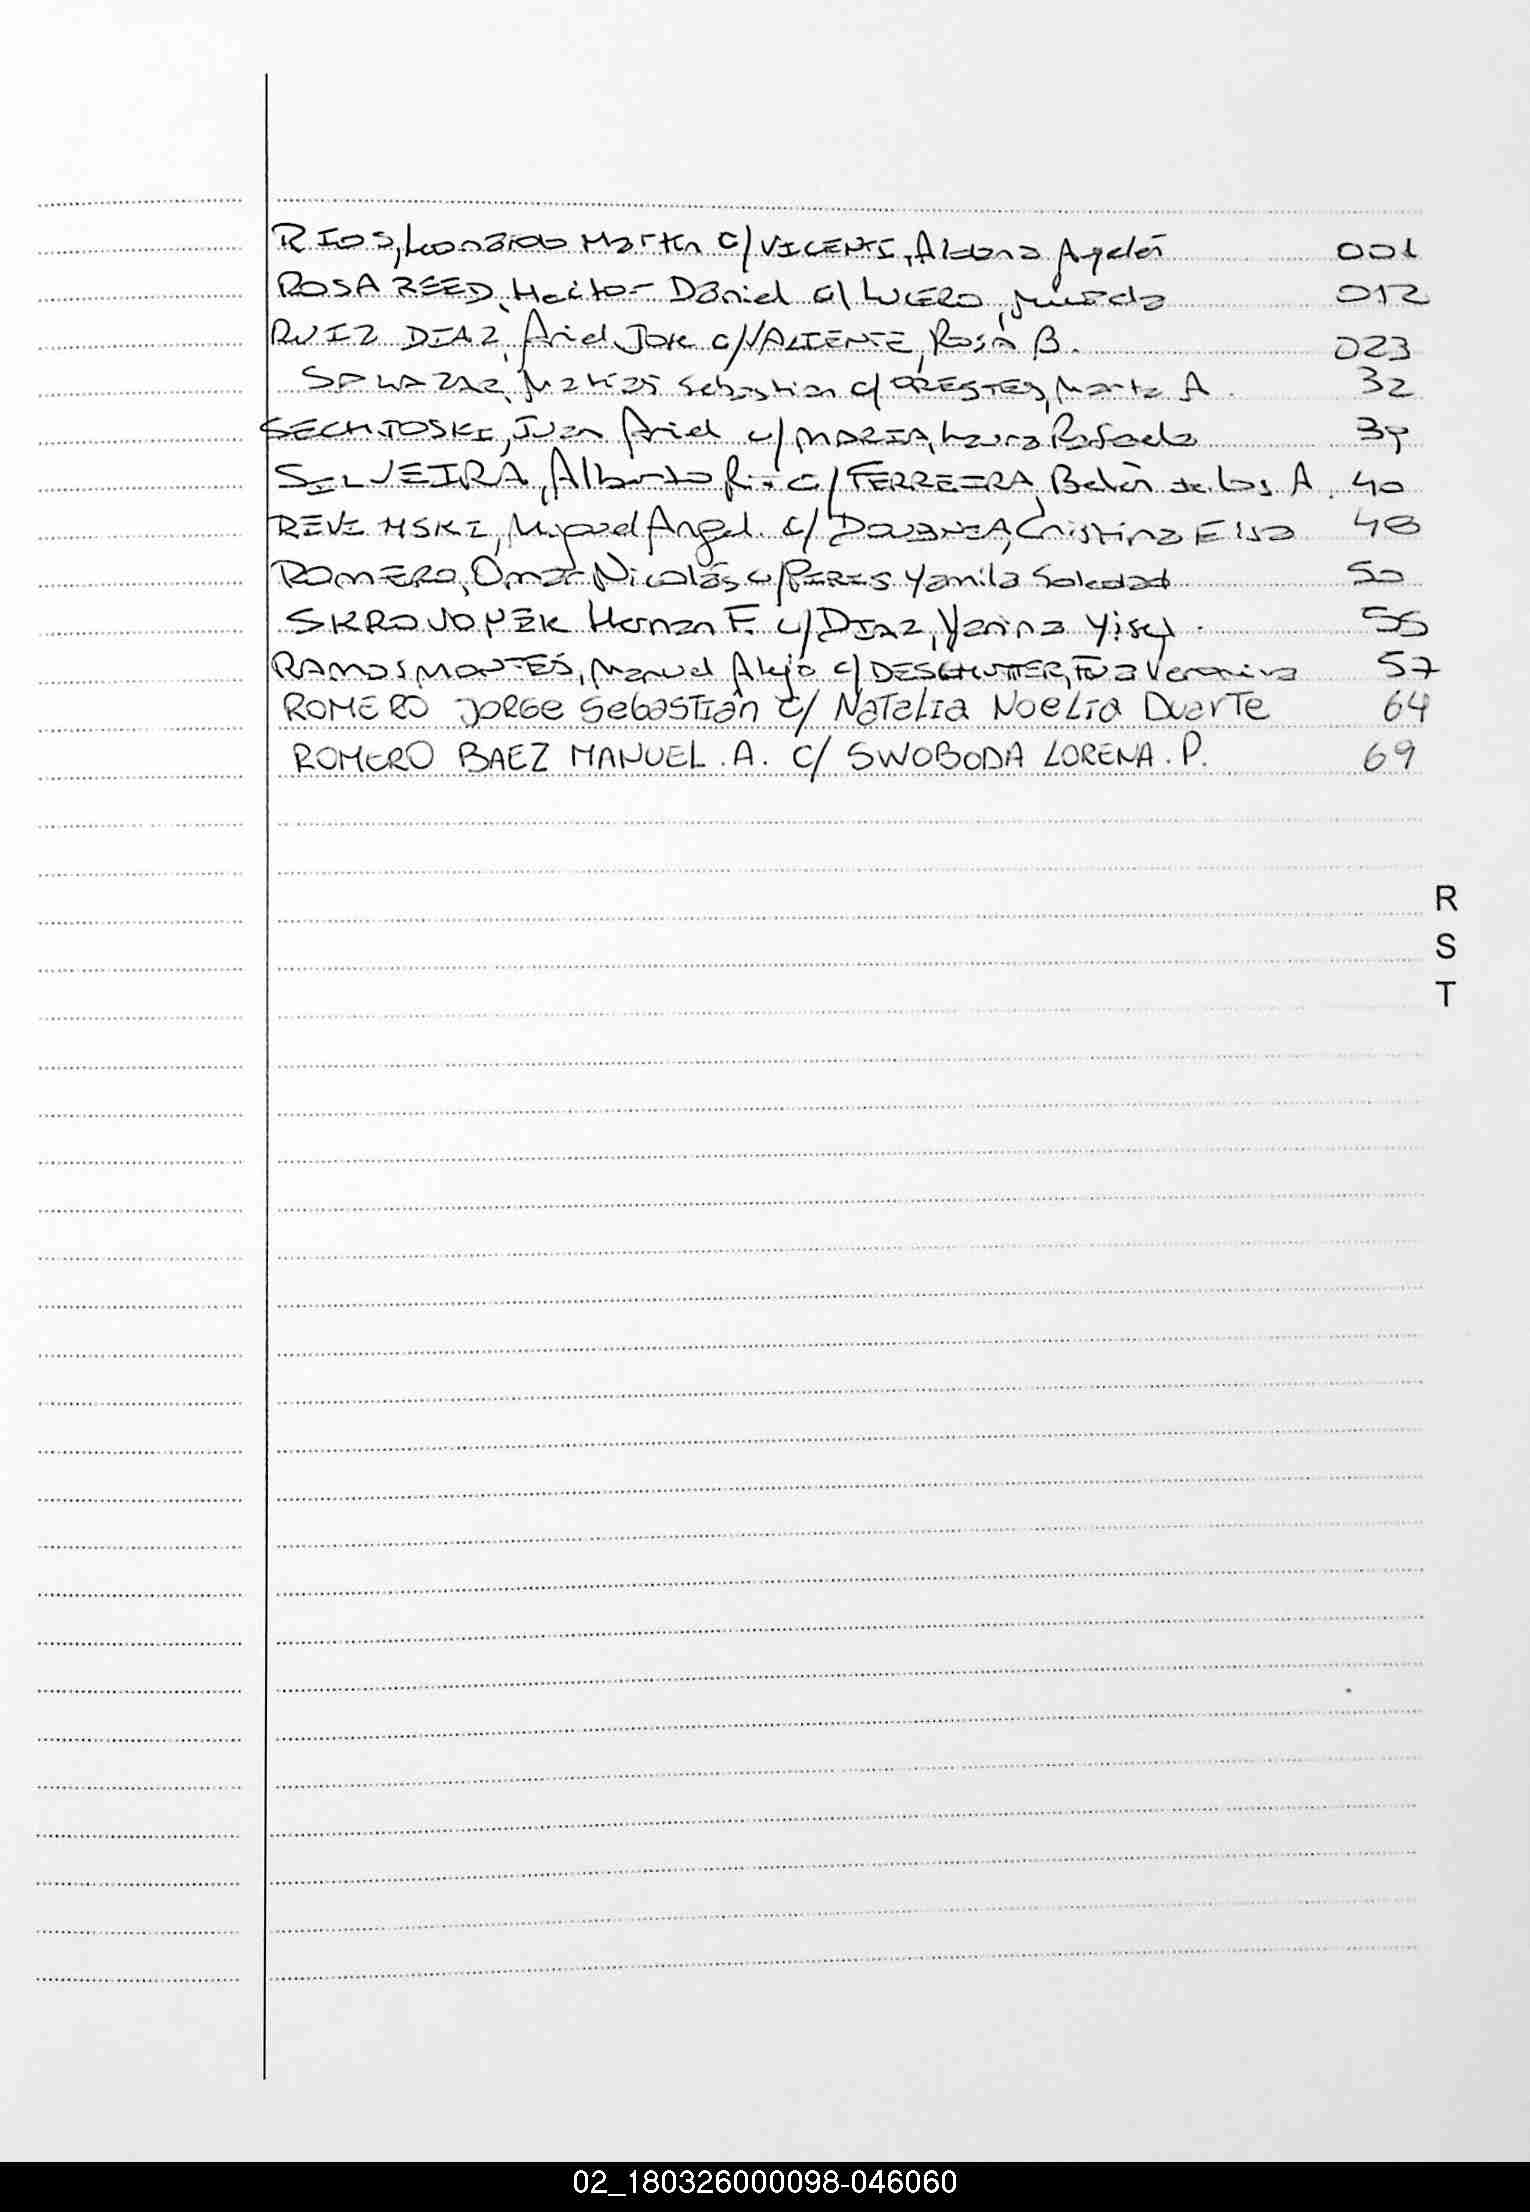 RIOS, Leonardo Martin c/ VICENTE, Aldana Ayelén 001
ROSA REED, Hector Daniel c/ LUCERO, 012
RUIZ DIAZ, Ariel José c/ VALIENTE, Rosa B. 023
SALAZAR, Matias Sebastian c/ ORESTES, Marta A. 32
SECHIOSKI, Juan Ariel c/ MARIA, Laura Rafaela 39
SILVEIRA, Alberto c/ FERREIRA, Belén de los A. 40
Miguel Angel c/ Cristina Elsa 48
ROMERO, Omar Nicolás c/ PERIS Yamila Soledad 50
SKROVOPEK Hernan F. c/ DIAZ, Yanina Yisel. 55
RAMOS MONTES, Manuel Alejo c/ DESCHUTTER, Veronica 57
ROMERO JORGE SebaSTián c/ NaTaLIa NOeLIa DuarTe 64
ROMERO BAEZ MANUEL .A. C/ SWOBODA LORENA. P. 69
R
S
T
02_180326000098-046060